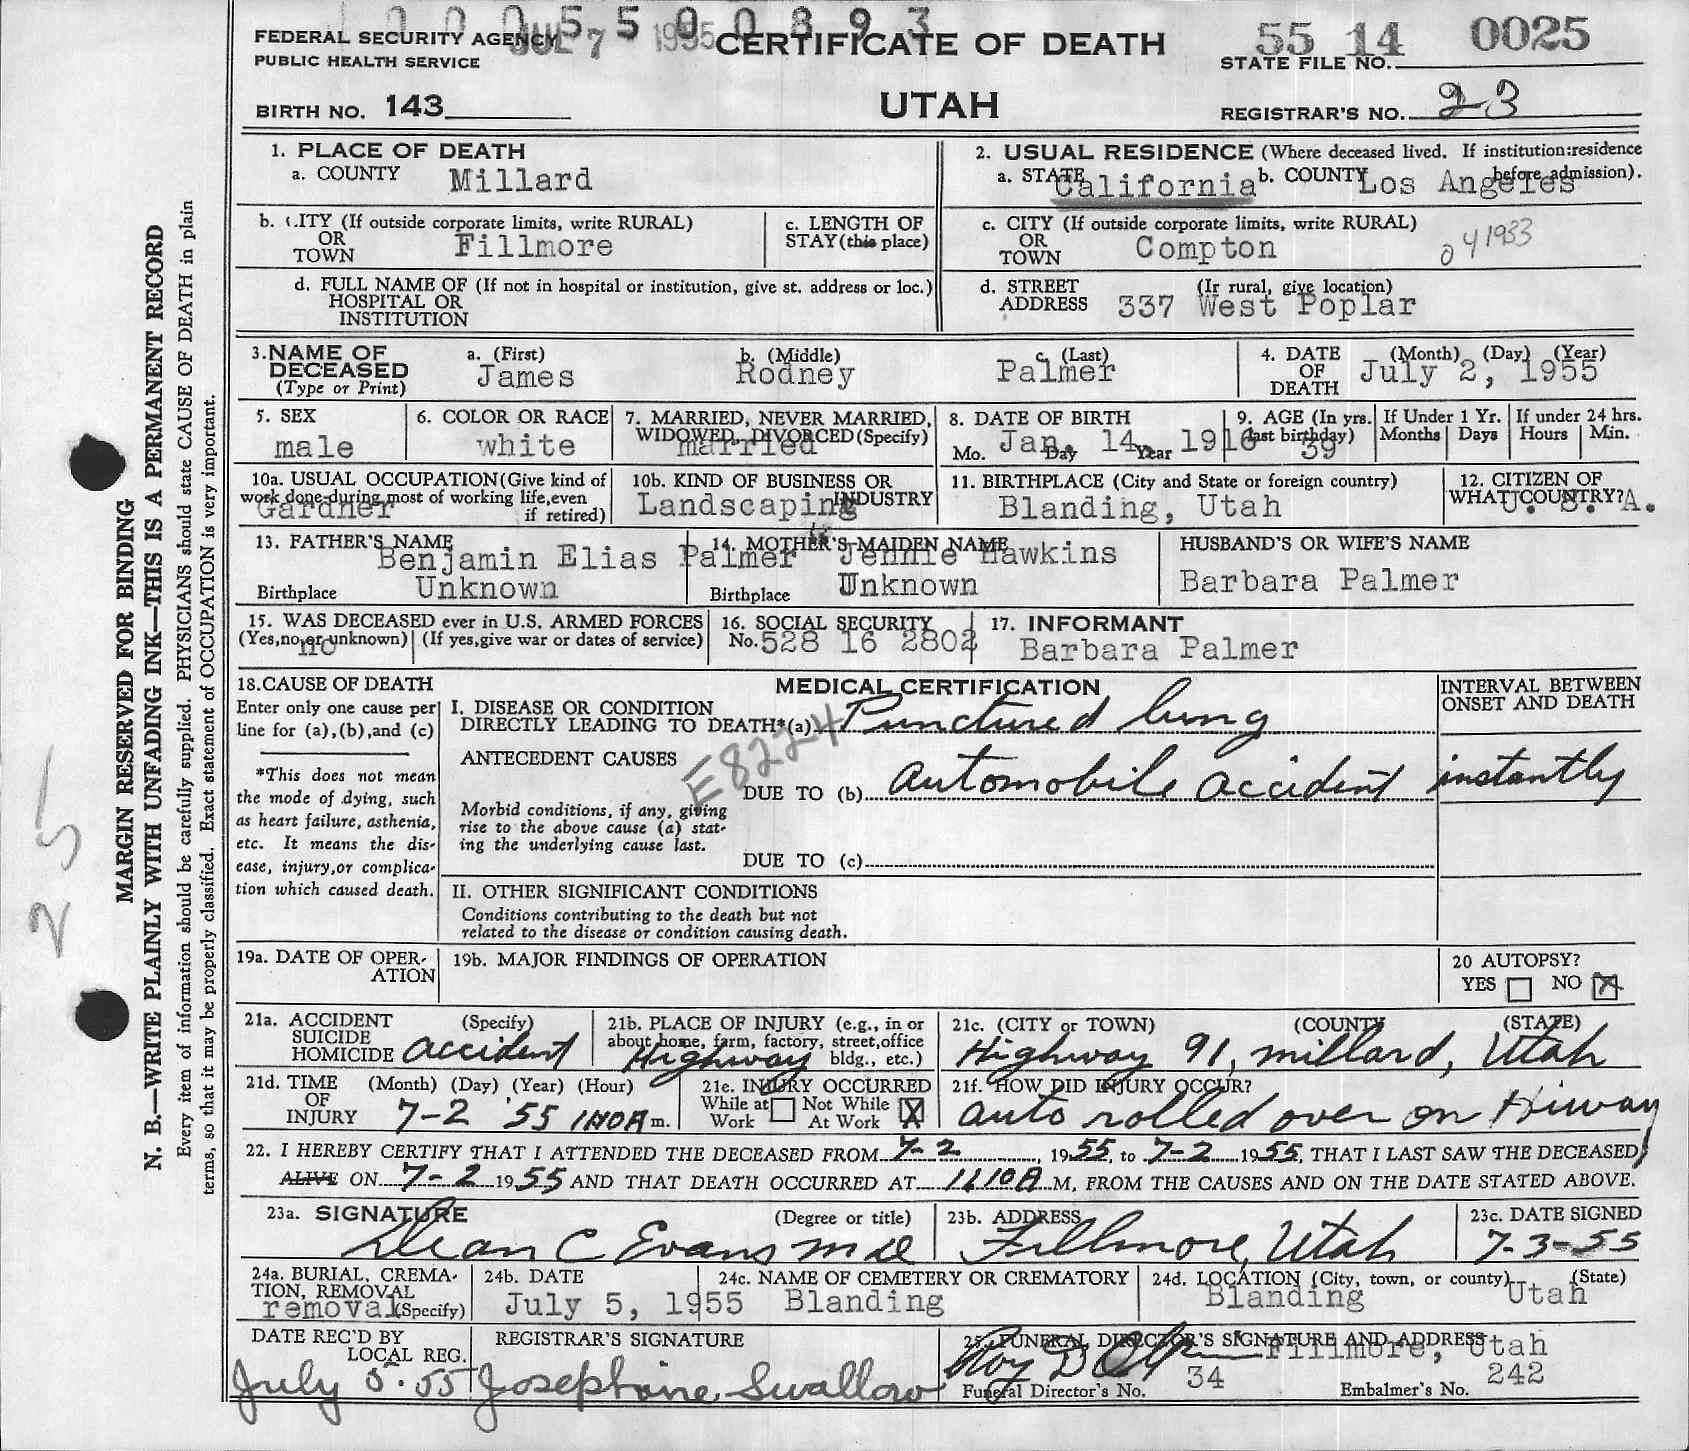 10005500893
FEDERAL SECURITY AGENCY JUL 7 1955 CERTIFICATE OF DEATH 55 14 0025
PUBLIC HEALTH SERVICE STATE FILE NO.
BIRTH NO. 143 UTAH REGISTRAR'S NO. 23
1. PLACE OF DEATH
a. COUNTY Millard
2. USUAL RESIDENCE (Where deceased lived. If institution:residence before admission).
a. STATE California b. COUNTY Los Angeles
b. CITY (If outside corporate limits, write RURAL)
OR
TOWN Fillmore
c. LENGTH OF
STAY (this place)
c. CITY (If outside corporate limits, write RURAL)
OR
TOWN Compton
041933
d. FULL NAME OF (If not in hospital or institution, give st. address or loc.)
HOSPITAL OR
INSTITUTION
d. STREET (If rural, give location)
ADDRESS 337 West Poplar
3. NAME OF DECEASED
(Type or Print)
a. (First) James
b. (Middle) Rodney
c. (Last) Palmer
4. DATE OF DEATH (Month) (Day) (Year)
July 2, 1955
5. SEX
male
6. COLOR OR RACE
white
7. MARRIED, NEVER MARRIED,
WIDOWED, DIVORCED (Specify)
married
8. DATE OF BIRTH
Mo. Jan. Day 14 Year 1916
9. AGE (In yrs. last birthday)
39
If Under 1 Yr.
Months Days
If under 24 hrs.
Hours Min.
10a. USUAL OCCUPATION (Give kind of
work done during most of working life, even
if retired)
Gardner
10b. KIND OF BUSINESS OR
INDUSTRY
Landscaping
11. BIRTHPLACE (City and State or foreign country)
Blanding, Utah
12. CITIZEN OF
WHAT COUNTRY?
U. S. A.
13. FATHER'S NAME
Benjamin Elias Palmer
Birthplace Unknown
14. MOTHER'S MAIDEN NAME
Jennie Hawkins
Birthplace Unknown
HUSBAND'S OR WIFE'S NAME
Barbara Palmer
15. WAS DECEASED ever in U.S. ARMED FORCES
(Yes, no, or unknown) (If yes, give war or dates of service)
no
16. SOCIAL SECURITY
No. 528 16 2802
17. INFORMANT
Barbara Palmer
18. CAUSE OF DEATH
Enter only one cause per
line for (a), (b), and (c)
*This does not mean
the mode of dying, such
as heart failure, asthenia,
etc. It means the dis-
ease, injury, or complica-
tion which caused death.
MEDICAL CERTIFICATION
INTERVAL BETWEEN
ONSET AND DEATH
I. DISEASE OR CONDITION
DIRECTLY LEADING TO DEATH*(a) Punctured lung
E8224
ANTECEDENT CAUSES
DUE TO (b) automobile accident instantly
Morbid conditions, if any, giving
rise to the above cause (a) stat-
ing the underlying cause last.
DUE TO (c)
II. OTHER SIGNIFICANT CONDITIONS
Conditions contributing to the death but not
related to the disease or condition causing death.
19a. DATE OF OPER-
ATION
19b. MAJOR FINDINGS OF OPERATION
20 AUTOPSY?
YES NO X
21a. ACCIDENT (Specify)
SUICIDE
HOMICIDE accident
21b. PLACE OF INJURY (e.g., in or
about home, farm, factory, street, office
bldg., etc.)
Highway
21c. (CITY or TOWN) (COUNTY) (STATE)
Highway 91, millard, Utah
21d. TIME (Month) (Day) (Year) (Hour)
OF
INJURY 7-2 '55 1110A m.
21e. INJURY OCCURRED
While at Work Not While At Work X
21f. HOW DID INJURY OCCUR?
auto rolled over on Hiway
22. I HEREBY CERTIFY THAT I ATTENDED THE DECEASED FROM 7-2, 1955, to 7-2 1955, THAT I LAST SAW THE DECEASED
ALIVE ON 7-2 1955 AND THAT DEATH OCCURRED AT 1110A M, FROM THE CAUSES AND ON THE DATE STATED ABOVE.
23a. SIGNATURE (Degree or title)
Dean C Evans MD
23b. ADDRESS
Fillmore, Utah
23c. DATE SIGNED
7-3-55
24a. BURIAL, CREMA-
TION, REMOVAL
(Specify)
removal
24b. DATE
July 5, 1955
24c. NAME OF CEMETERY OR CREMATORY
Blanding
24d. LOCATION (City, town, or county) (State)
Blanding Utah
DATE REC'D BY
LOCAL REG.
July 5-55
REGISTRAR'S SIGNATURE
Josephine Swallow
25. FUNERAL DIRECTOR'S SIGNATURE AND ADDRESS
Roy D Fillmore, Utah
Funeral Director's No. 34 Embalmer's No. 242
MARGIN RESERVED FOR BINDING
N. B.—WRITE PLAINLY WITH UNFADING INK—THIS IS A PERMANENT RECORD
Every item of information should be carefully supplied. PHYSICIANS should state CAUSE OF DEATH in plain
terms, so that it may be properly classified. Exact statement of OCCUPATION is very important.
25